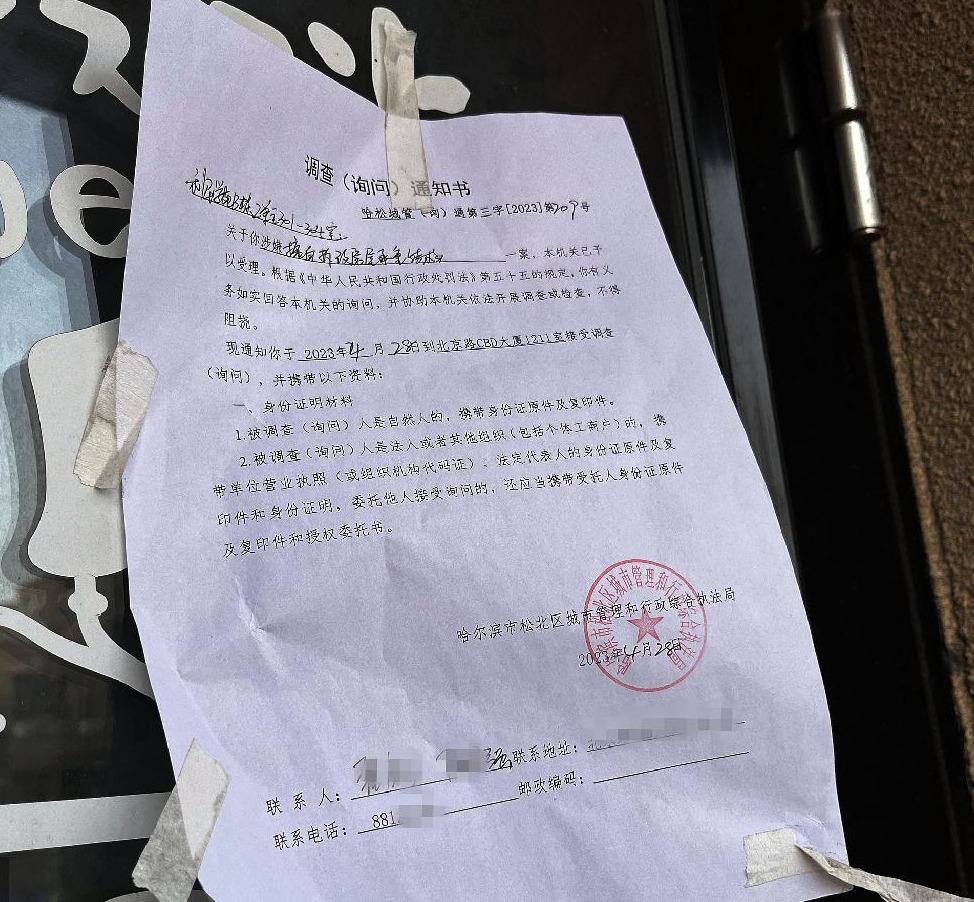 调查（询问）通知书
哈松城管（询）通第三字[2023]第709号
关于你涉嫌擅自拆改房屋承重结构一案，本机关已予
以受理。根据《中华人民共和国行政处罚法》第五十五的规定，你有义
务如实回答本机关的询问，并协助本机关依法开展调查或检查，不得
阻挠。
现通知你于 2023年4月28日到北京路CBD大厦1211室接受调查
（询问），并携带以下资料：
一、身份证明材料
1.被调查（询问）人是自然人的，携带身份证原件及复印件。
2.被调查（询问）人是法人或者其他组织（包括个体工商户）的，携
带单位营业执照（或组织机构代码证）、法定代表人的身份证原件及复
印件和身份证明，委托他人接受询问的，还应当携带受托人身份证原件
及复印件和授权委托书。
哈尔滨市松北区城市管理和行政综合执法局
2023年4月28日
联 系 人： 联系地址：
联系电话：881 邮政编码：